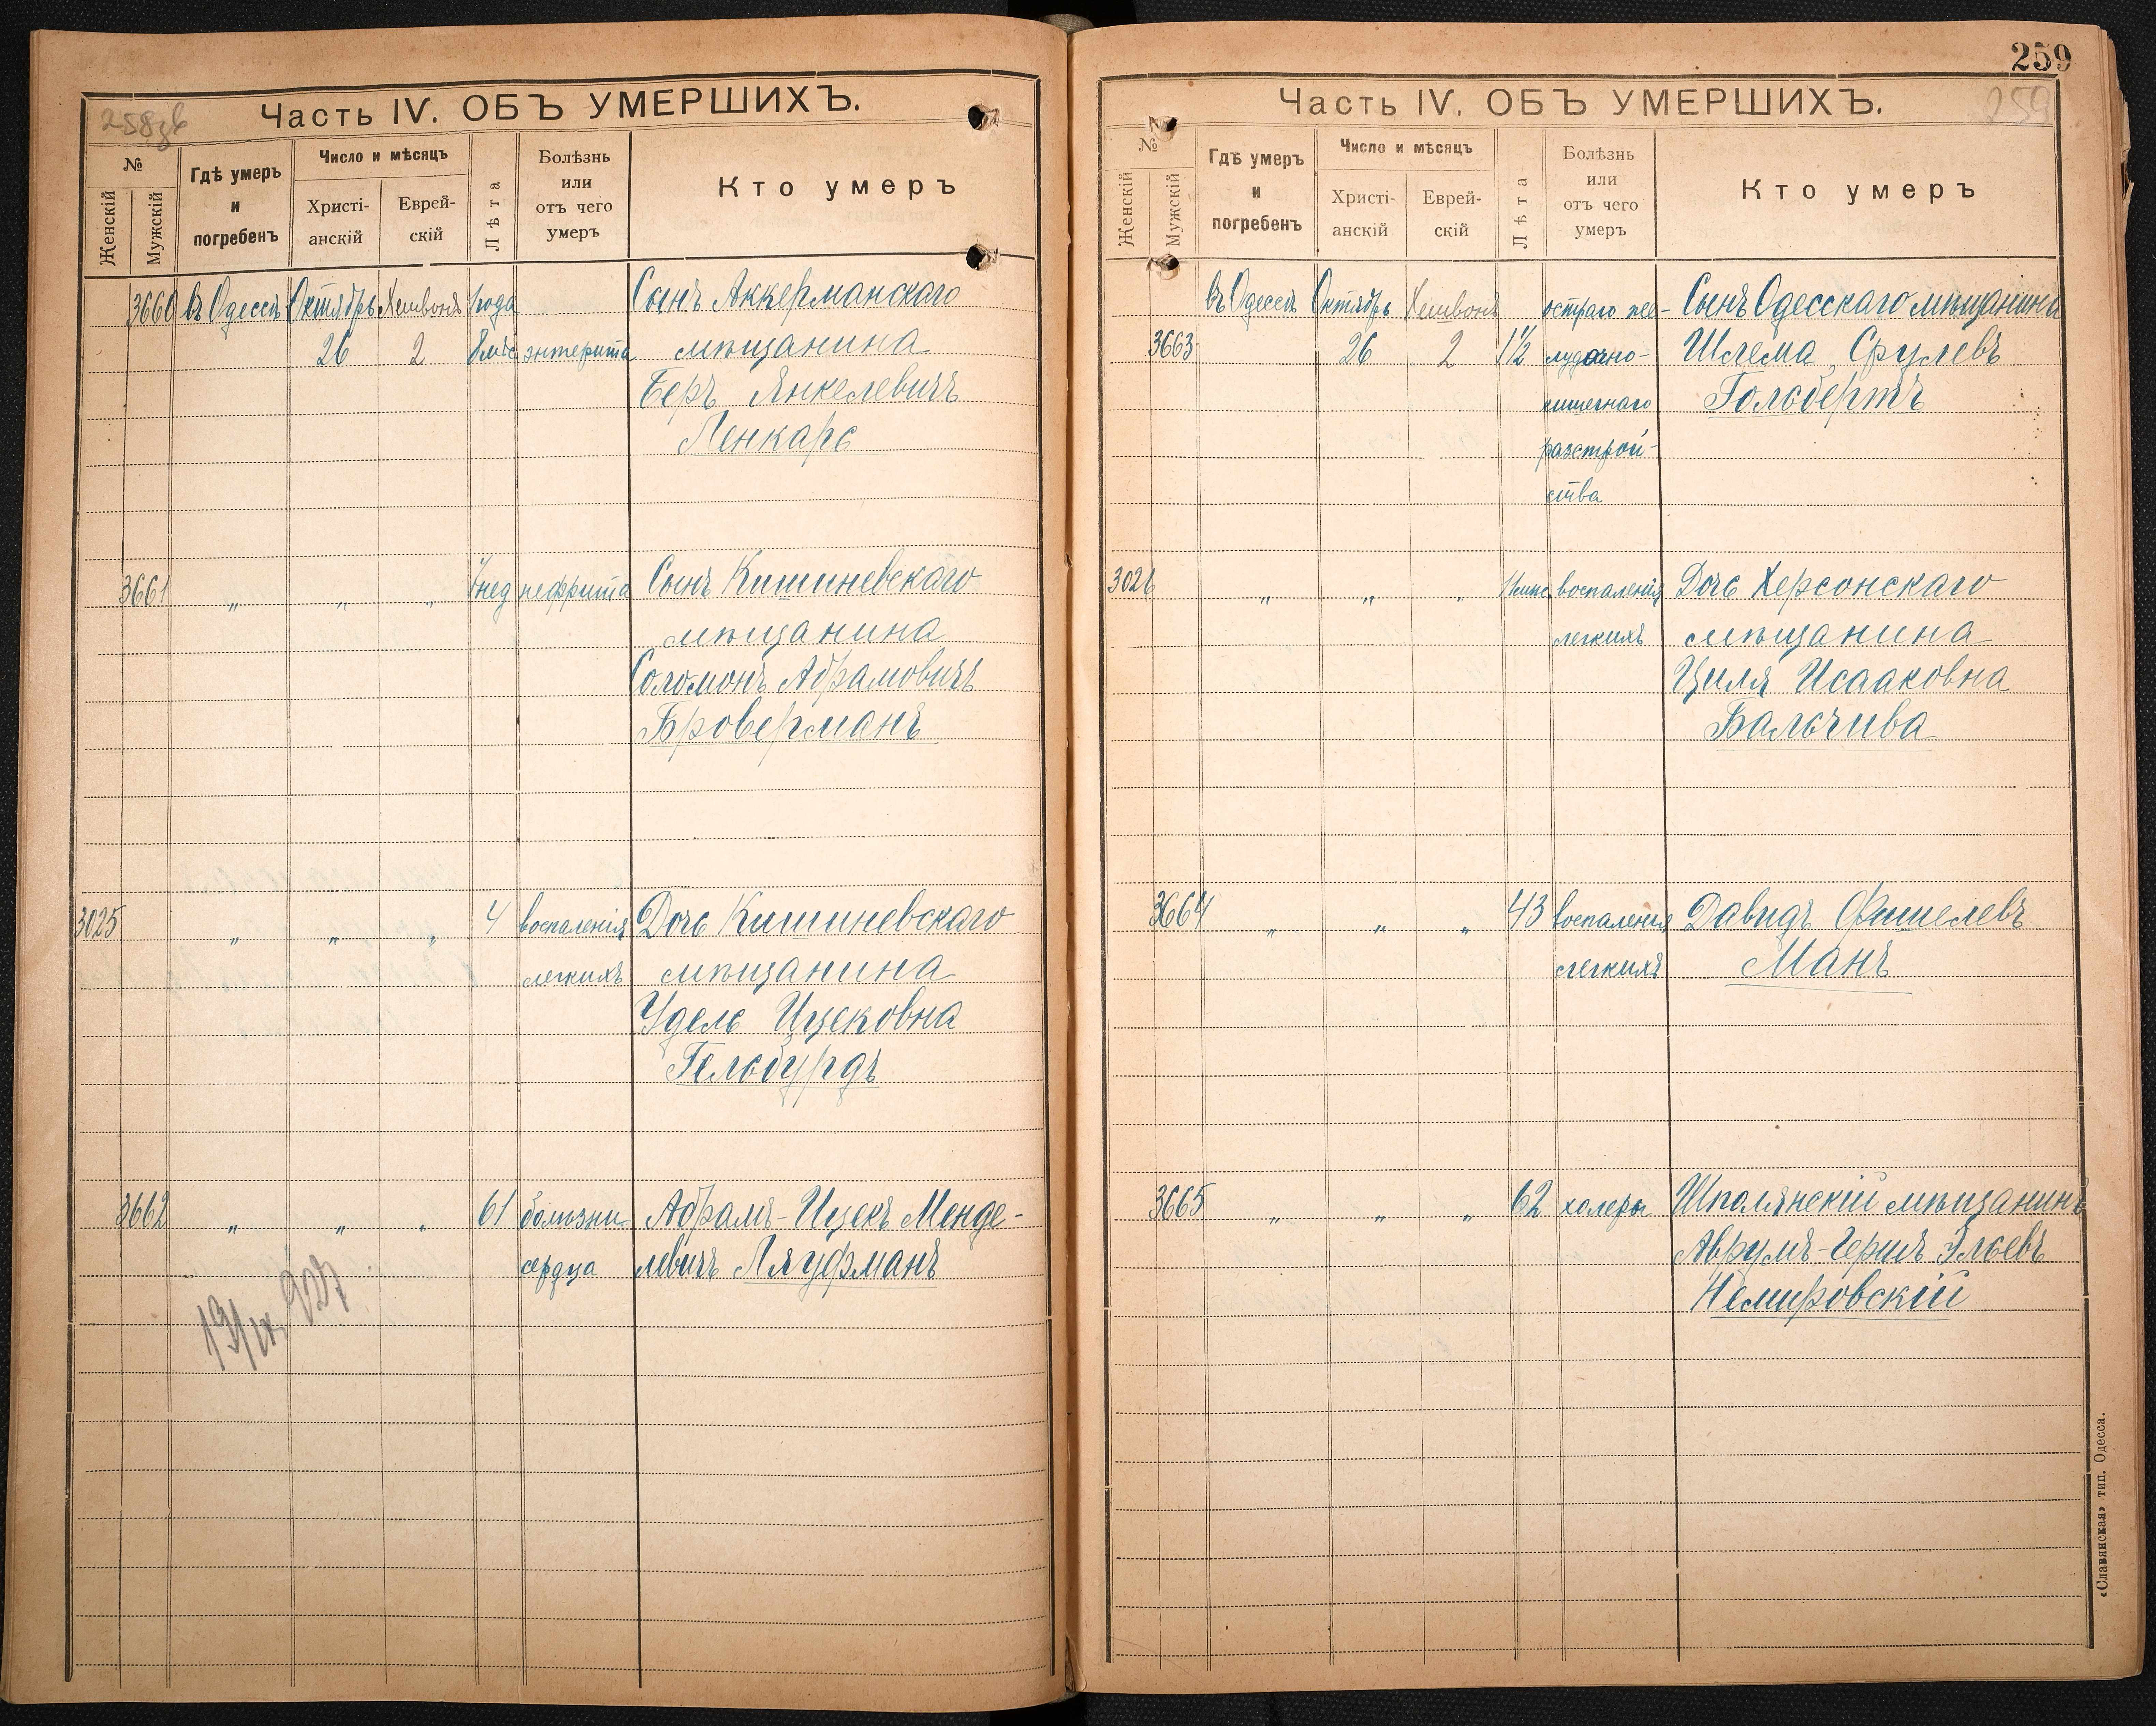 258зв
Часть IV. ОБЪ УМЕРШИХЪ.
№
Женскій
Мужскій
Гдѣ умеръ
и
погребенъ
Число и мѣсяцъ
Христі-
анскій
Еврей-
скій
Лѣта
Болѣзнь
или
отъ чего
умеръ
Кто умеръ
3660 въ Одессѣ Октябрь Хешвонъ 1 года Сынъ Аккерманскаго
26 2 8 мѣс энтерита мѣщанина
Беръ Янкелевичъ
Ленкарь
3661 " " " нед нефрита Сынъ Кишиневскаго
мѣщанина
Соломонъ Абрамовичъ
Броверманъ
3025 " " " 4 воспаленія Дочь Кишиневскаго
легкихъ мѣщанина
Удель Ицековна
Гельбурдъ
3662 " " " 61 болѣзни Абрамъ-Ицекъ Менде-
сердца левичъ Ляуфманъ
19/IX 927
259
Часть IV. ОБЪ УМЕРШИХЪ.
259
№
Женскій
Мужскій
Гдѣ умеръ
и
погребенъ
Число и мѣсяцъ
Христі-
анскій
Еврей-
скій
Лѣта
Болѣзнь
или
отъ чего
умеръ
Кто умеръ
въ Одессѣ Октябрь Хешвонъ остраго же- Сынъ Одесскаго мѣщанина
3663 26 2 1½ лудочно- Шлема Срулевъ
кишечнаго Гольбертъ
разстрой-
ства
3026 " " " 11 мис. воспаленія Дочь Херсонскаго
легкихъ мѣщанина
Циля Исааковна
Бальчива
3664 " " " 43 воспаленія Давидъ Фишелевъ
легкихъ Манъ
3665 " " " 62 холеры Шполянскій мѣщанинъ
Аврумъ-Гершъ Эльевъ
Немировскій
«Славянская» тип. Одесса.